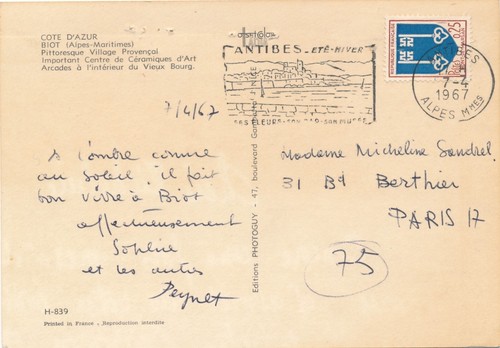 COTE D'AZUR
BIOT (Alpes-Maritimes)
Pittoresque Village Provençal
Important Centre de Céramiques d'Art
Arcades à l'intérieur du Vieux Bourg.
ANTIBES - ÉTÉ-HIVER
SES FLEURS - SON CAP - SON MUSÉE
REPUBLIQUE FRANÇAISE
0,25
ANTIBES
7-4
1967
ALPES MMES
7/4/67
à l'ombre comme
au soleil il fait
bon vivre à Biot
affectueusement
Sophie
et les autres
Peynet
Editions PHOTOGUY - 47, boulevard
Madame Micheline Sandrel
31 Bd Berthier
PARIS 17
75
H-839
Printed in France - Reproduction interdite